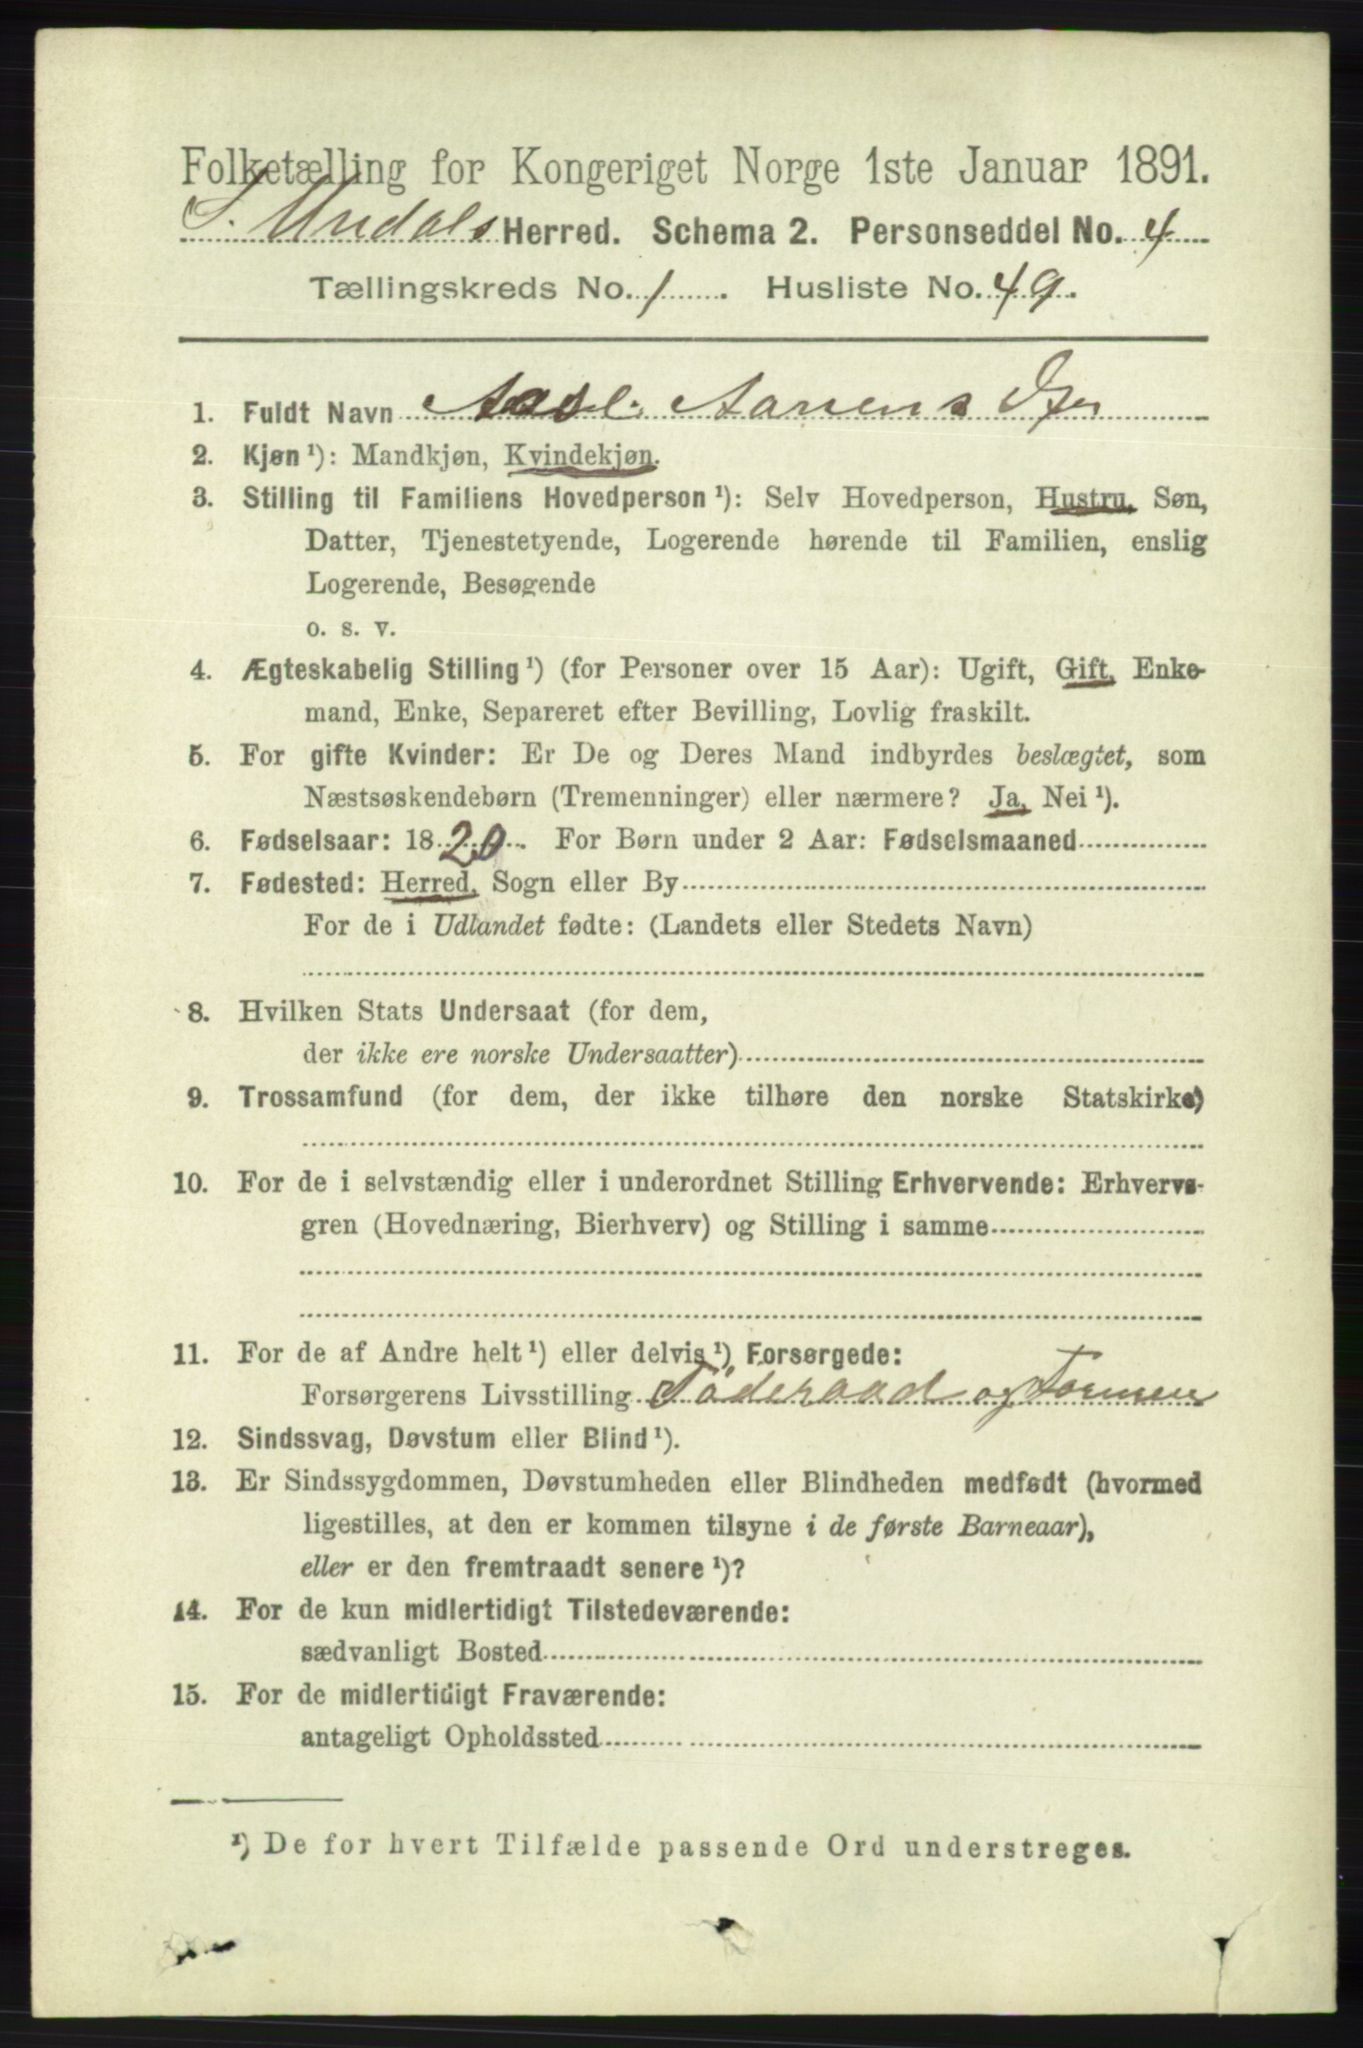 Folketælling for Kongeriget Norge 1ste Januar 1891.
S. Undals Herred. Schema 2. Personseddel No. 4
Tællingskreds No. 1. Husliste No. 49.
1. Fuldt Navn Aasel Aanens Dtr
2. Kjøn ¹): Mandkjøn, Kvindekjøn.
3. Stilling til Familiens Hovedperson ¹): Selv Hovedperson, Hustru, Søn,
Datter, Tjenestetyende, Logerende hørende til Familien, enslig
Logerende, Besøgende
o. s. v.
4. Ægteskabelig Stilling ¹) (for Personer over 15 Aar): Ugift, Gift, Enke-
mand, Enke, Separeret efter Bevilling, Lovlig fraskilt.
5. For gifte Kvinder: Er De og Deres Mand indbyrdes beslægtet, som
Næstsøskendebørn (Tremenninger) eller nærmere? Ja, Nei ¹).
6. Fødselsaar: 1820. For Børn under 2 Aar: Fødselsmaaned
7. Fødested: Herred, Sogn eller By
For de i Udlandet fødte: (Landets eller Stedets Navn)
8. Hvilken Stats Undersaat (for dem,
der ikke ere norske Undersaatter)
9. Trossamfund (for dem, der ikke tilhøre den norske Statskirke)
10. For de i selvstændig eller i underordnet Stilling Erhvervende: Erhvervs-
gren (Hovednæring, Bierhverv) og Stilling i samme
11. For de af Andre helt ¹) eller delvis ¹) Forsørgede:
Forsørgerens Livsstilling Föderaad og Formue
12. Sindssvag, Døvstum eller Blind ¹).
13. Er Sindssygdommen, Døvstumheden eller Blindheden medfødt (hvormed
ligestilles, at den er kommen tilsyne i de første Barneaar),
eller er den fremtraadt senere ¹)?
14. For de kun midlertidigt Tilstedeværende:
sædvanligt Bosted
15. For de midlertidigt Fraværende:
antageligt Opholdssted
¹) De for hvert Tilfælde passende Ord understreges.